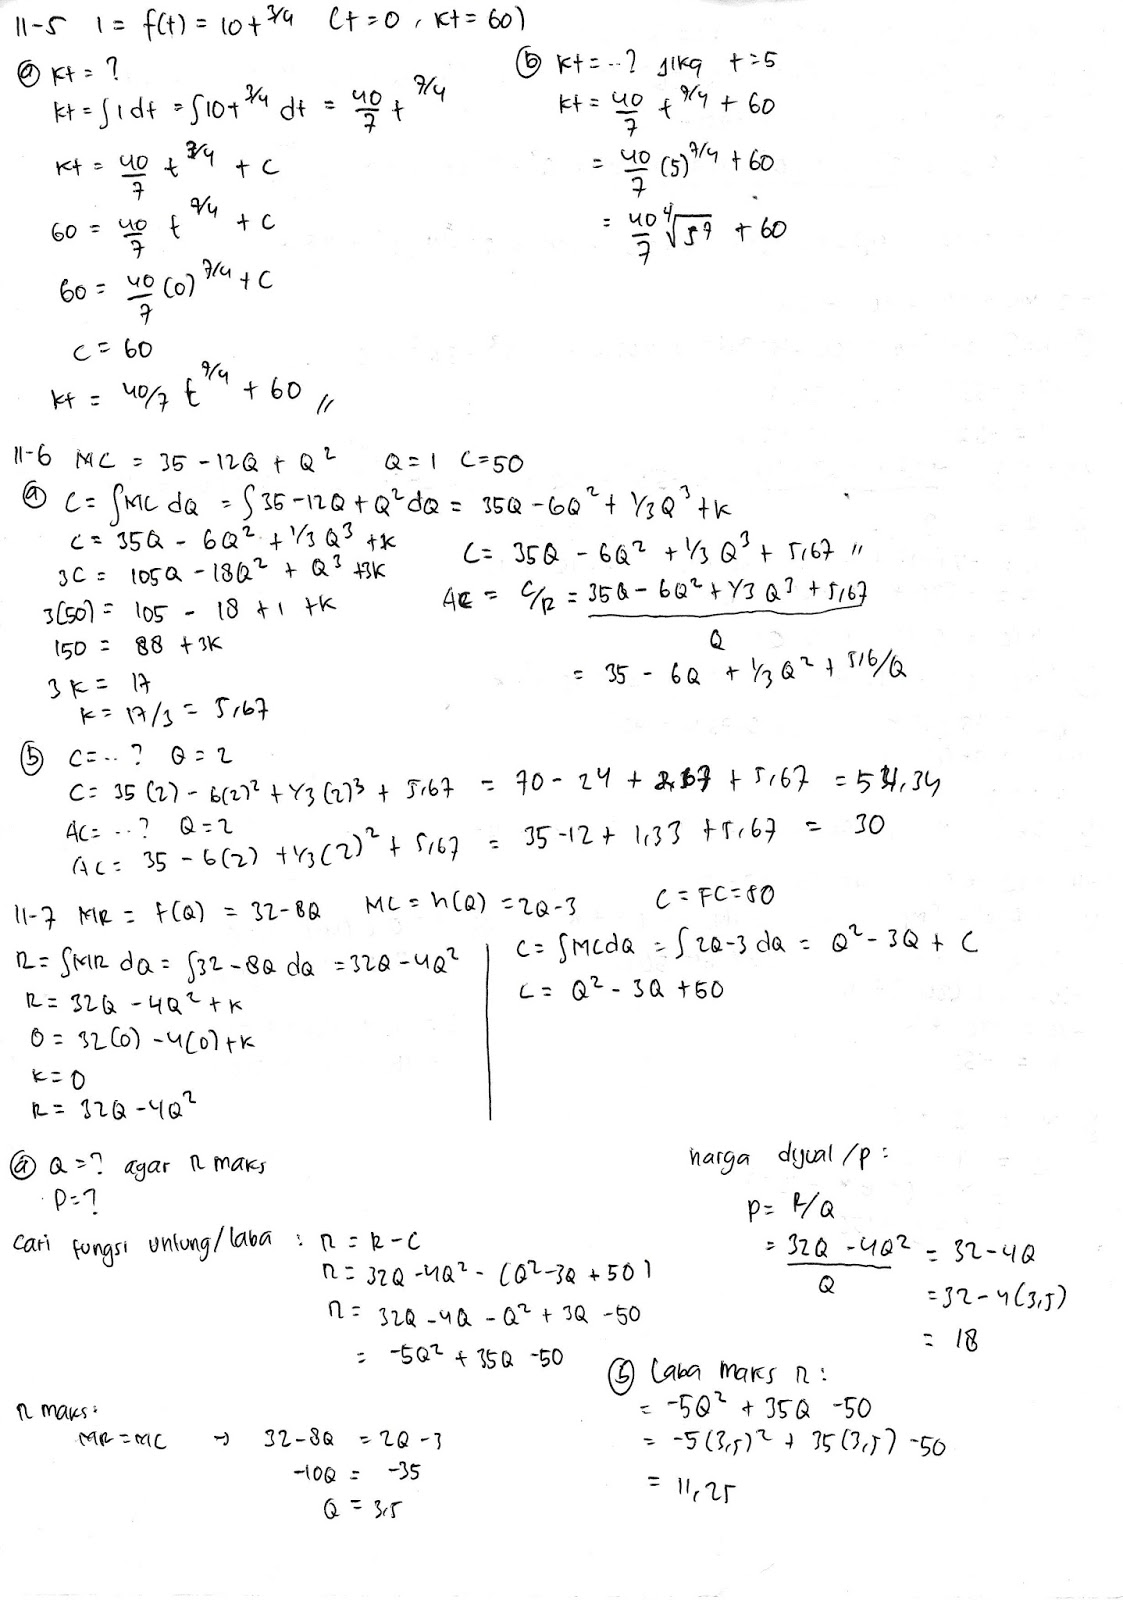 11-5 I = f(t) = 10t^3/4 (t=0, Kt=60)
ⓐ Kt = ?
Kt = ∫I dt = ∫10t^3/4 dt = 40/7 t^7/4
Kt = 40/7 t^7/4 + C
60 = 40/7 t^7/4 + C
60 = 40/7 (0)^7/4 + C
C = 60
Kt = 40/7 t^7/4 + 60 //
ⓑ Kt = ..? jika t=5
Kt = 40/7 t^7/4 + 60
= 40/7 (5)^7/4 + 60
= 40/7 ⁴√5^7 + 60
11-6 MC = 35 - 12Q + Q² Q=1 C=50
ⓐ C = ∫MC dQ = ∫35-12Q+Q² dQ = 35Q - 6Q² + 1/3Q³ + k
C = 35Q - 6Q² + 1/3 Q³ + k
3C = 105Q - 18Q² + Q³ + 3k
3(50) = 105 - 18 + 1 + k
150 = 88 + 3k
3k = 17
k = 17/3 = 5,67
C = 35Q - 6Q² + 1/3 Q³ + 5,67 //
AC = C/Q = 35Q - 6Q² + 1/3 Q³ + 5,67 / Q
= 35 - 6Q + 1/3 Q² + 5,6/Q
ⓑ C = ..? Q = 2
C = 35(2) - 6(2)² + 1/3(2)³ + 5,67 = 70 - 24 + 2,67 + 5,67 = 54,34
AC = ..? Q = 2
AC = 35 - 6(2) + 1/3(2)² + 5,67 = 35-12 + 1,33 + 5,67 = 30
11-7 MR = f(Q) = 32-8Q MC = h(Q) = 2Q-3 C = FC = 50
R = ∫MR dQ = ∫32-8Q dQ = 32Q-4Q²
R = 32Q - 4Q² + k
0 = 32(0) - 4(0) + k
k = 0
R = 32Q - 4Q²
C = ∫MC dQ = ∫2Q-3 dQ = Q² - 3Q + C
C = Q² - 3Q + 50
ⓐ Q = ? agar π maks
P = ?
Cari fungsi untung/laba : π = R - C
π = 32Q - 4Q² - (Q²-3Q + 50)
π = 32Q - 4Q - Q² + 3Q - 50
= -5Q² + 35Q - 50
π maks:
MR = MC → 32-8Q = 2Q - 3
-10Q = -35
Q = 3,5
harga dijual /p :
P = R/Q
= 32Q - 4Q² / Q = 32 - 4Q
= 32 - 4(3,5)
= 18
ⓑ Laba maks π :
= -5Q² + 35Q - 50
= -5(3,5)² + 35(3,5) - 50
= 11,25